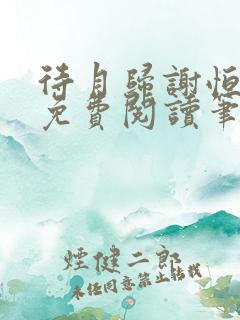 待月歸謝恒
免費閱讀筆
煙健二郎
未經同意禁止轉載